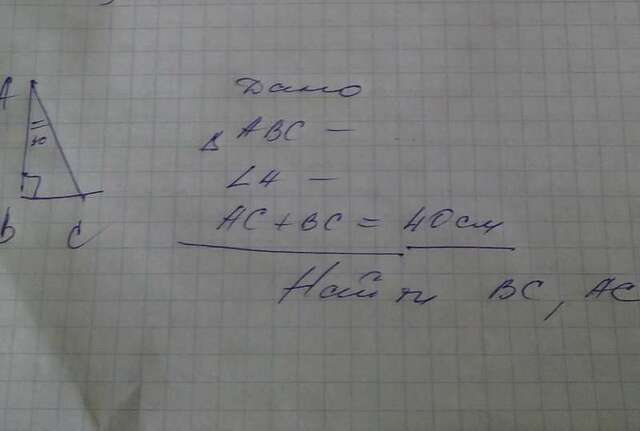 A
B
C
Дано
Δ ABC —
∠4 —
AC + BC = 40см
Найти BC, AC